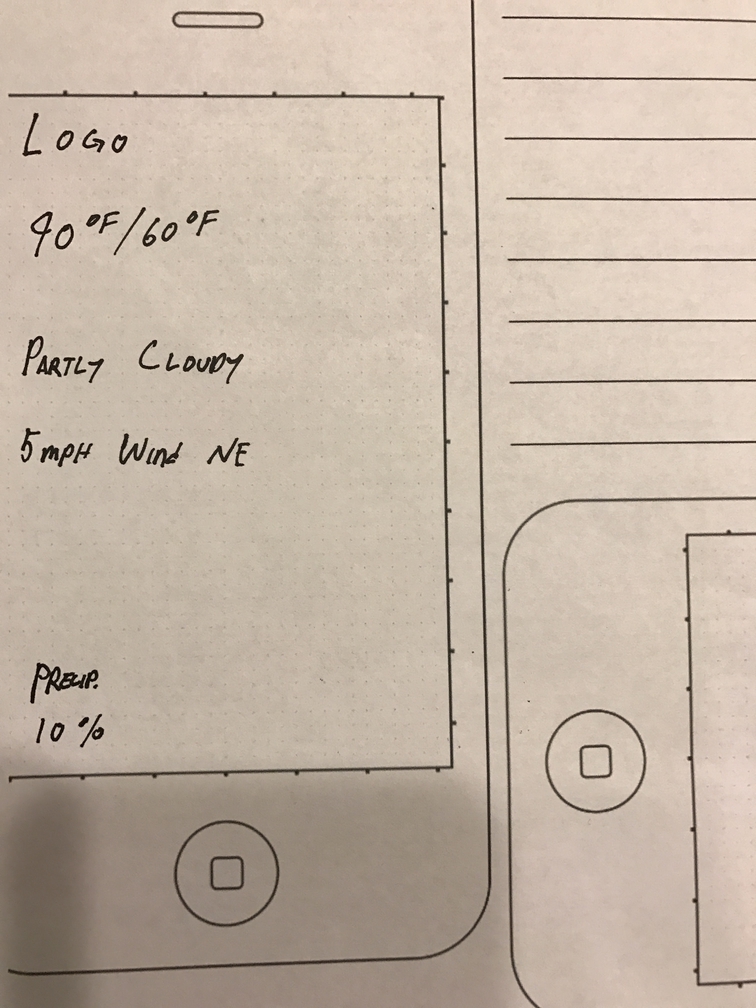 LOGO
90°F/60°F
PARTLY CLOUDY
5mpH Wind NE
PRECIP.
10%